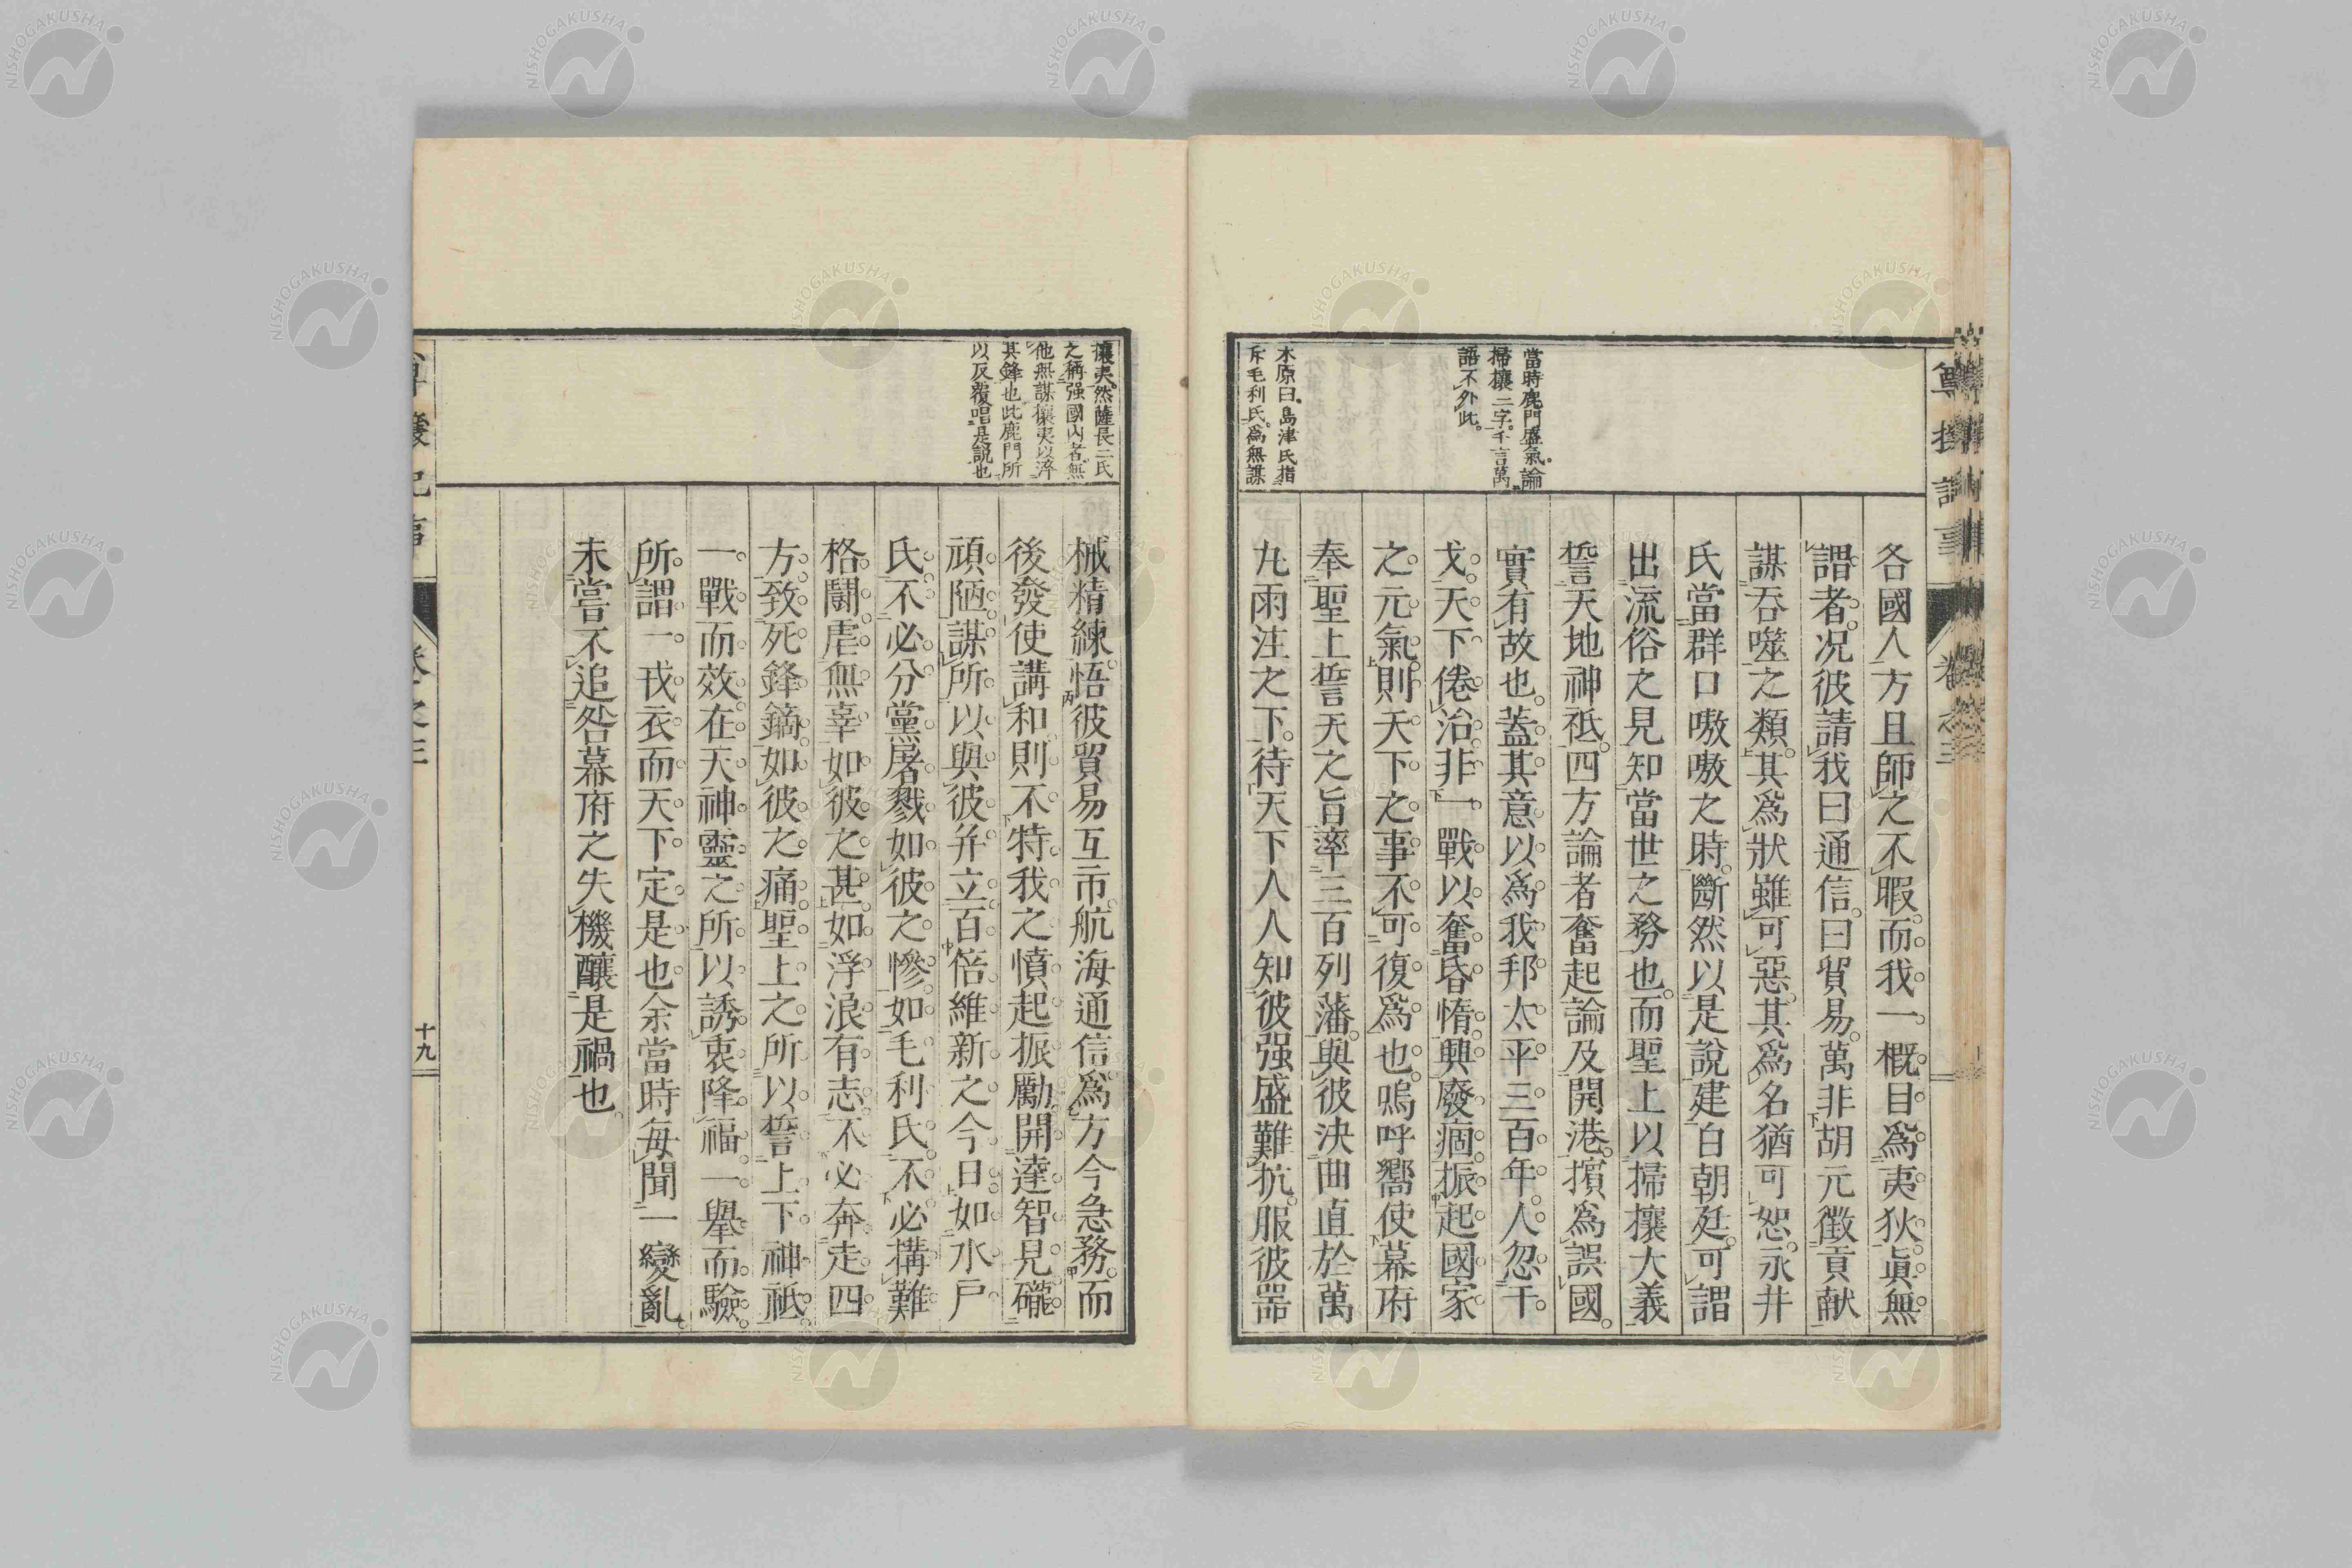 各國人方且師之不暇。而我一概目爲夷狄。眞無
謂者。况彼請我曰通信。曰貿易。萬非胡元徵貢献
謀呑噬之類。其爲狀雖可惡。其爲名猶可恕。永井
氏當群口嗷嗷之時。斷然以是說建白朝廷。可謂
出流俗之見知當世之務也。而聖上以掃攘大義
誓天地神祇。四方論者奮起論及開港。擯爲誤國。
實有故也。蓋其意以爲我邦太平三百年。人忽干
戈。天下倦治。非一戰以奮昏惰。興廢痼。振起國家
之元氣。則天下之事不可復爲也。嗚呼嚮使幕府
奉聖上誓天之旨。率三百列藩。與彼決曲直於萬
九雨注之下。待天下人人知彼强盛難抗。服彼器
當時鹿門盛氣。論
掃攘二字。千言萬
語不外此。
木原曰。島津氏指
斥毛利氏。爲無謀
尊攘記事
卷之三
械精練。悟彼貿易互市。航海通信爲方今急務。而
後發使講和。則不特我之憤起振勵。開達智見。礲
頑陋。謀所以與彼幷立。百倍維新之今日。如水戶
氏不必分黨屠戮如彼之慘。如毛利氏。不必搆難
格鬪虐無辜如彼之甚。如浮浪有志。不必奔走四
方。致死鋒鏑如彼之痛。聖上之所以誓上下神祇
一戰而效在。天神靈之所以誘衷降福。一舉而驗。
所謂一戎衣而天下定。是也。余當時每聞一變亂
未嘗不追咎幕府之失機釀是禍也。
攘夷然薩長二氏
之稱强國內者無
他無謀攘夷以淬
其鋒也此鹿門所
以反覆唱是說也
尊攘記事
卷之三
十九